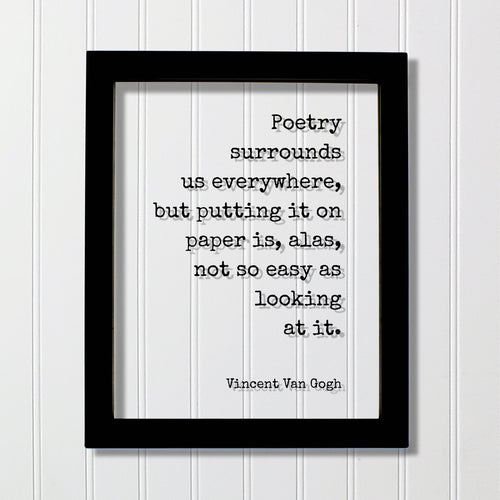 Poetry
surrounds
us everywhere,
but putting it on
paper is, alas,
not so easy as
looking
at it.
Vincent Van Gogh